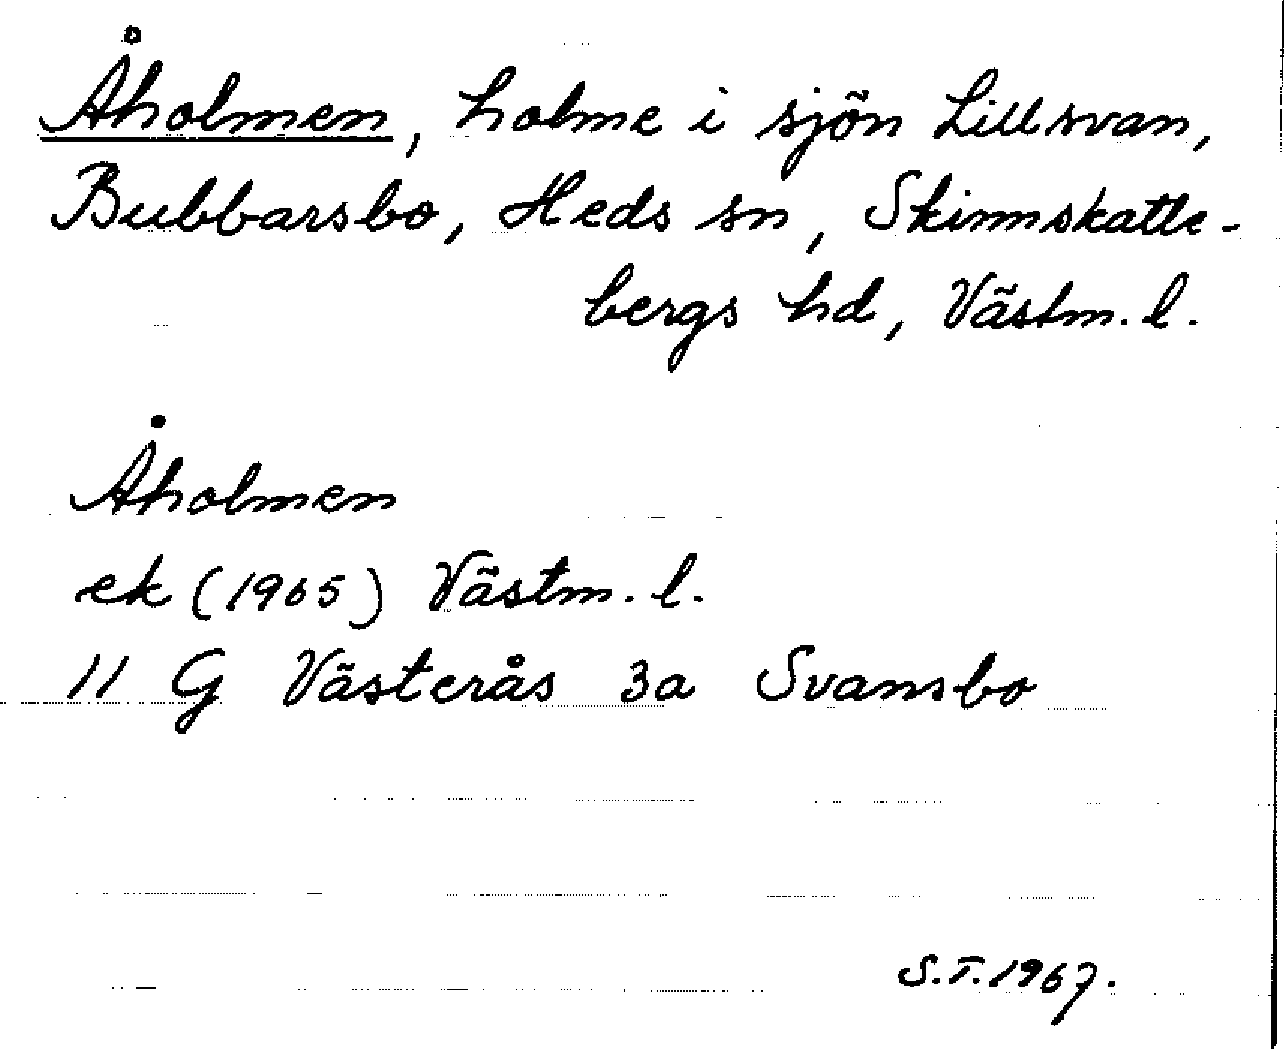 Åholmen, holme i sjön Lillsvan,
Bubbarsbo, Heds sn, Skinnskatte-
bergs hd, Västm. l.
Åholmen
ek (1965) Västm. l.
11 G Västerås 3a Svansbo
S.T. 1967.